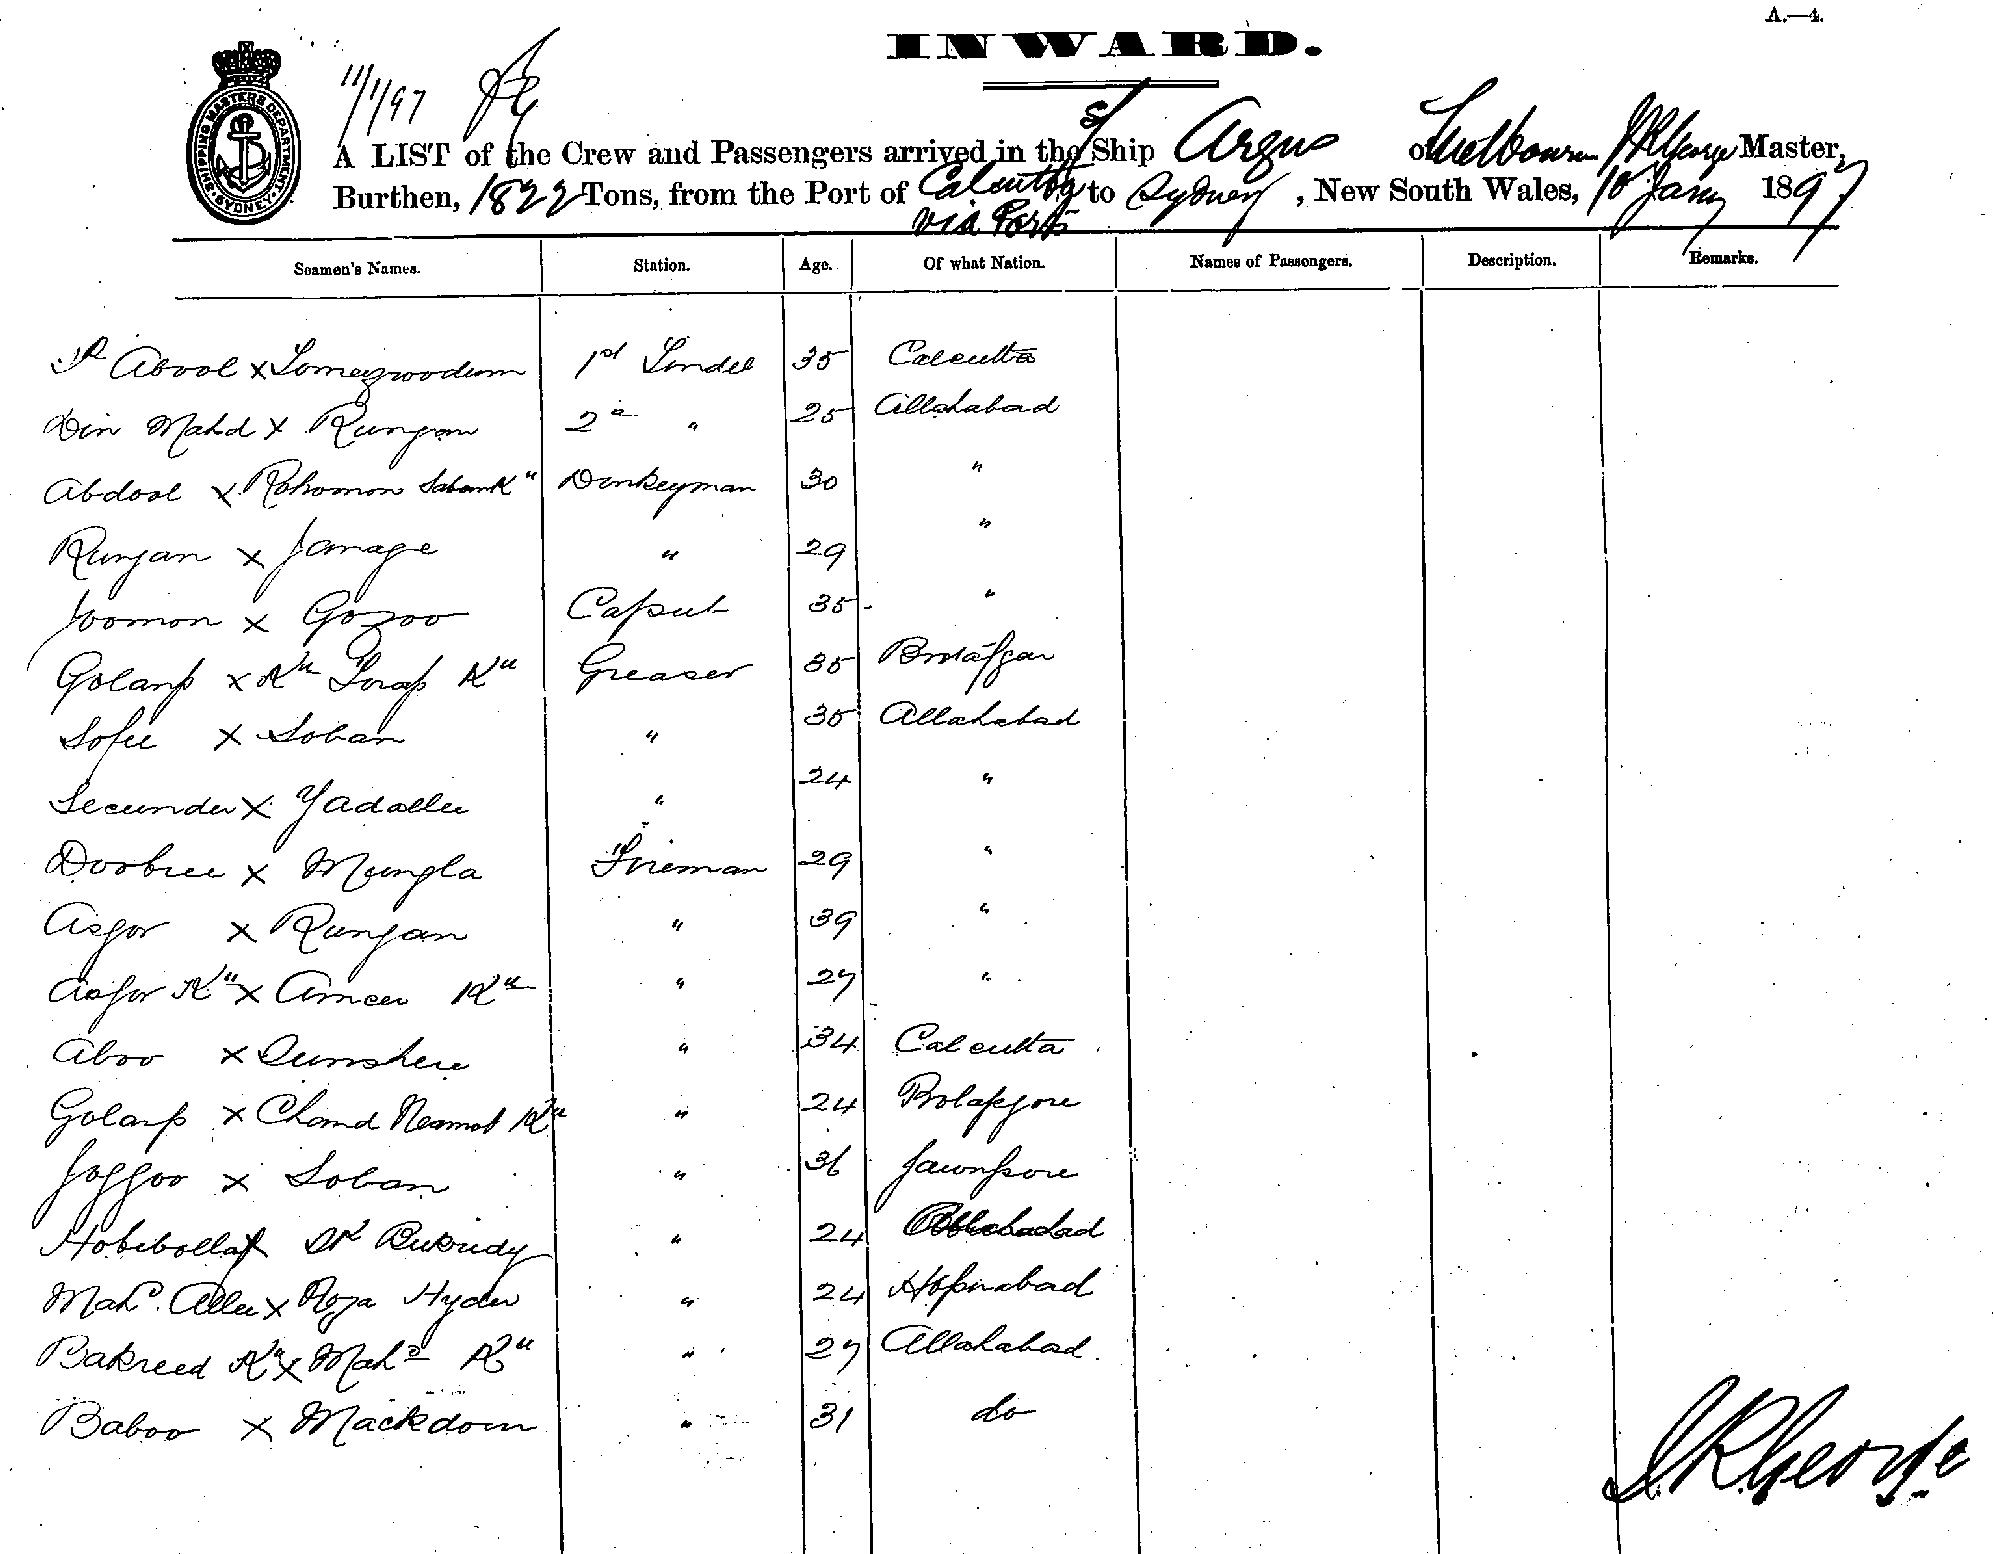 A.—4.
INWARD.
11/1/97
SHIPPING MASTERS DEPARTMENT SYDNEY
A LIST of the Crew and Passengers arrived in the S/ Ship Argus of Melbourne J R George Master,
Burthen, 1822 Tons, from the Port of Calcutta via Ports to Sydney, New South Wales, 10 Jany 1897
Seamen's Names. Station. Age. Of what Nation. Names of Passengers. Description. Remarks.
Abool x 1st Tindel 35 Calcutta
Din Mahd x Runjan 2d " 25 Allahabad
Abdool x Rohomon Donkeyman 30 "
Runjan x Jamage " 29 "
Joomon x Gozoo 35 "
Golamp x Kn Kn Greaser 35
Sofee x Soban " 35 Allahabad
Secunder x Yadallee " 24 "
Doobree x Mungla Fireman 29 "
Asgor x Runjan " 39 "
Asgor Kn x Ameer Kn " 27 "
Aboo x " 34 Calcutta
Golamp x Chand Neamot Kn " 24
Joggoo x Soban " 36 Jawnpore
Hobibolla x Sk " 24
Mahd. Allee x Roza Hyder " 24
Bakreed Kn x Mahd Kn " 27 Allahabad
Baboo x Mackdom " 31 do
J R George